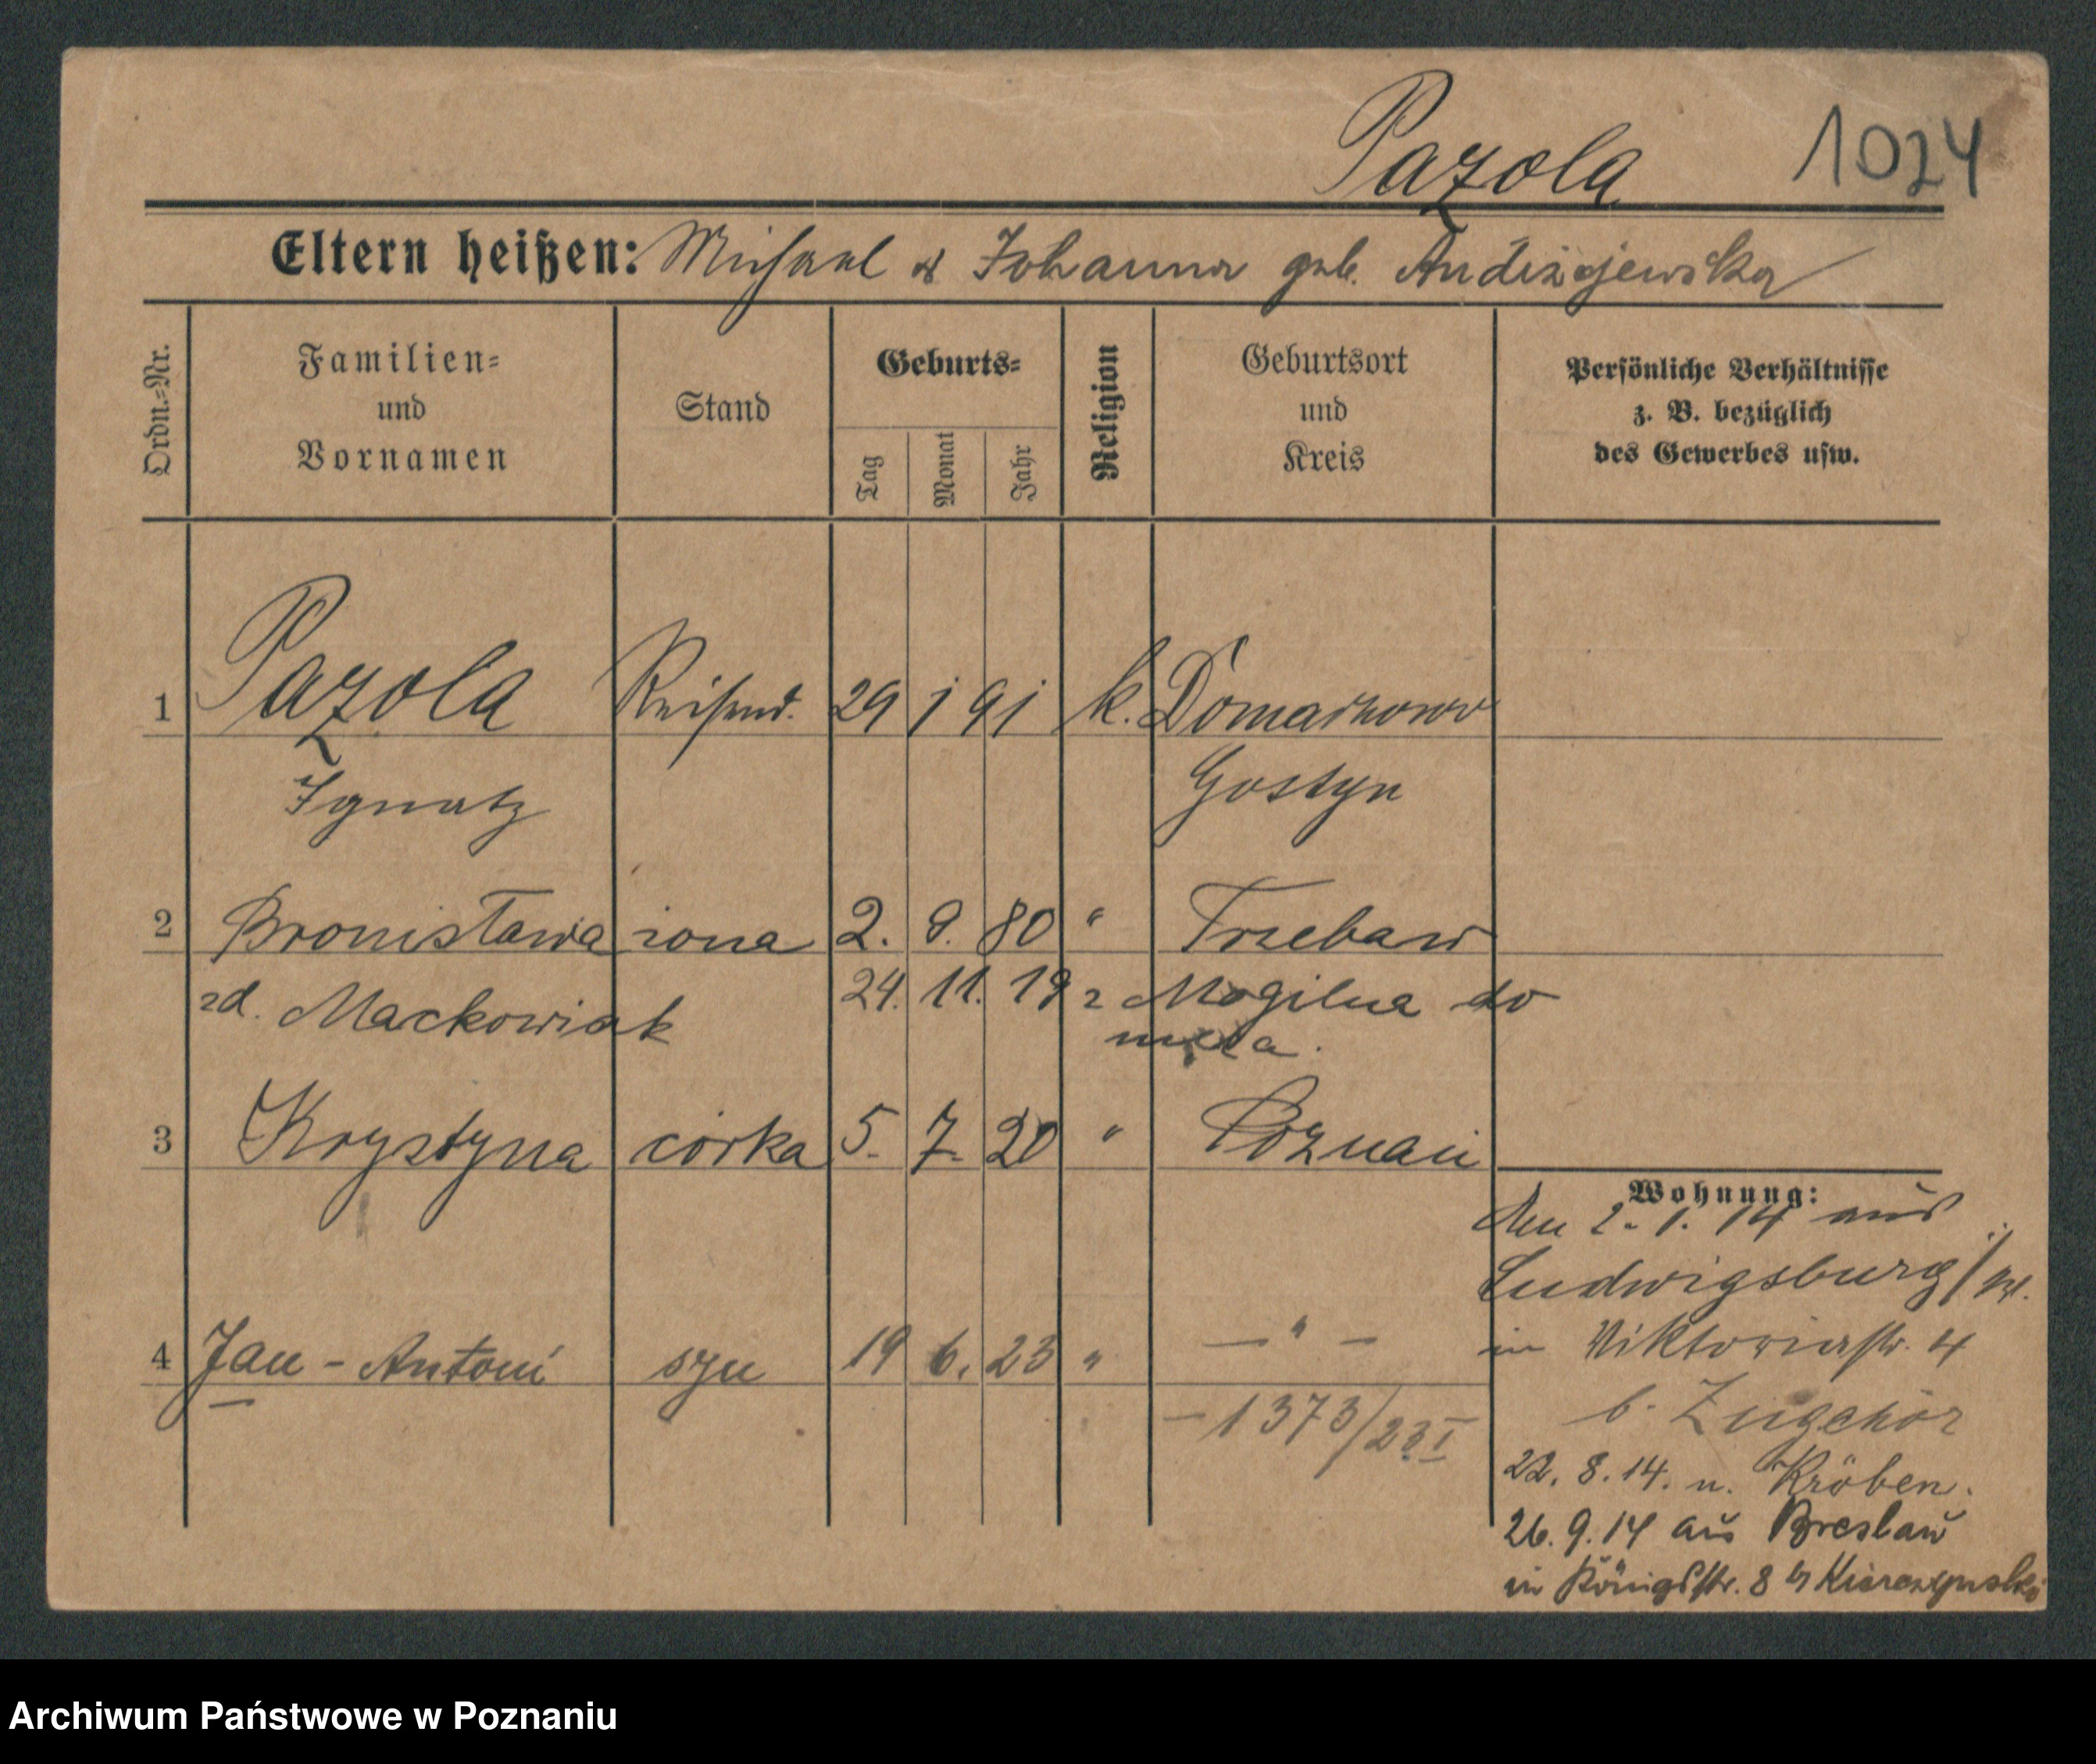 Pazola 1024
Eltern heißen: Michael & Johanna geb. Andrzejewska
Ordn.-Nr.
Familien-
und
Vornamen
Stand
Geburts-
Tag
Monat
Jahr
Religion
Geburtsort
und
Kreis
Persönliche Verhältnisse
z. B. bezüglich
des Gewerbes usw.
1 Pazola Reisend. 29 1 91 k. Domachowo
Ignatz Gostyn
2 Bronisława żona 2. 8. 80 " Trzebaw
zd. Mackowiak 24. 11. 19 z Mogilna do
męża.
3 Krystyna córka 5. 7. 20 " Poznań
Wohnung:
den 2. 1. 14 aus
Ludwigsburg
in Viktoriastr. 4
b. Zugehör
4 Jan - Antoni syn 19 6. 23 " — " —
- 1373/23 I
22. 8. 14. n. Kröben.
26. 9. 14 aus Breslau
in Königstr. 8 b
Archiwum Państwowe w Poznaniu